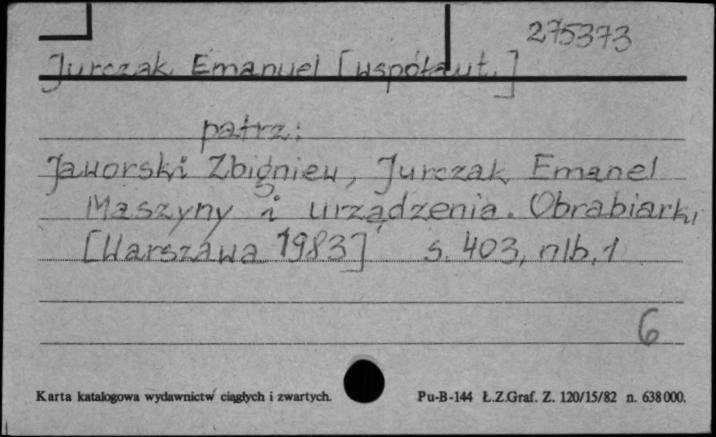 275373
Jurczak Emanuel [współaut.]
patrz:
Jaworski Zbigniew, Jurczak Emanel
Maszyny i urządzenia. Obrabiarki
[Warszawa 1983] s. 403, nlb. 1
6
Karta katalogowa wydawnictw ciągłych i zwartych. Pu-B-144 Ł.Z.Graf. Z. 120/15/82 n. 638 000.